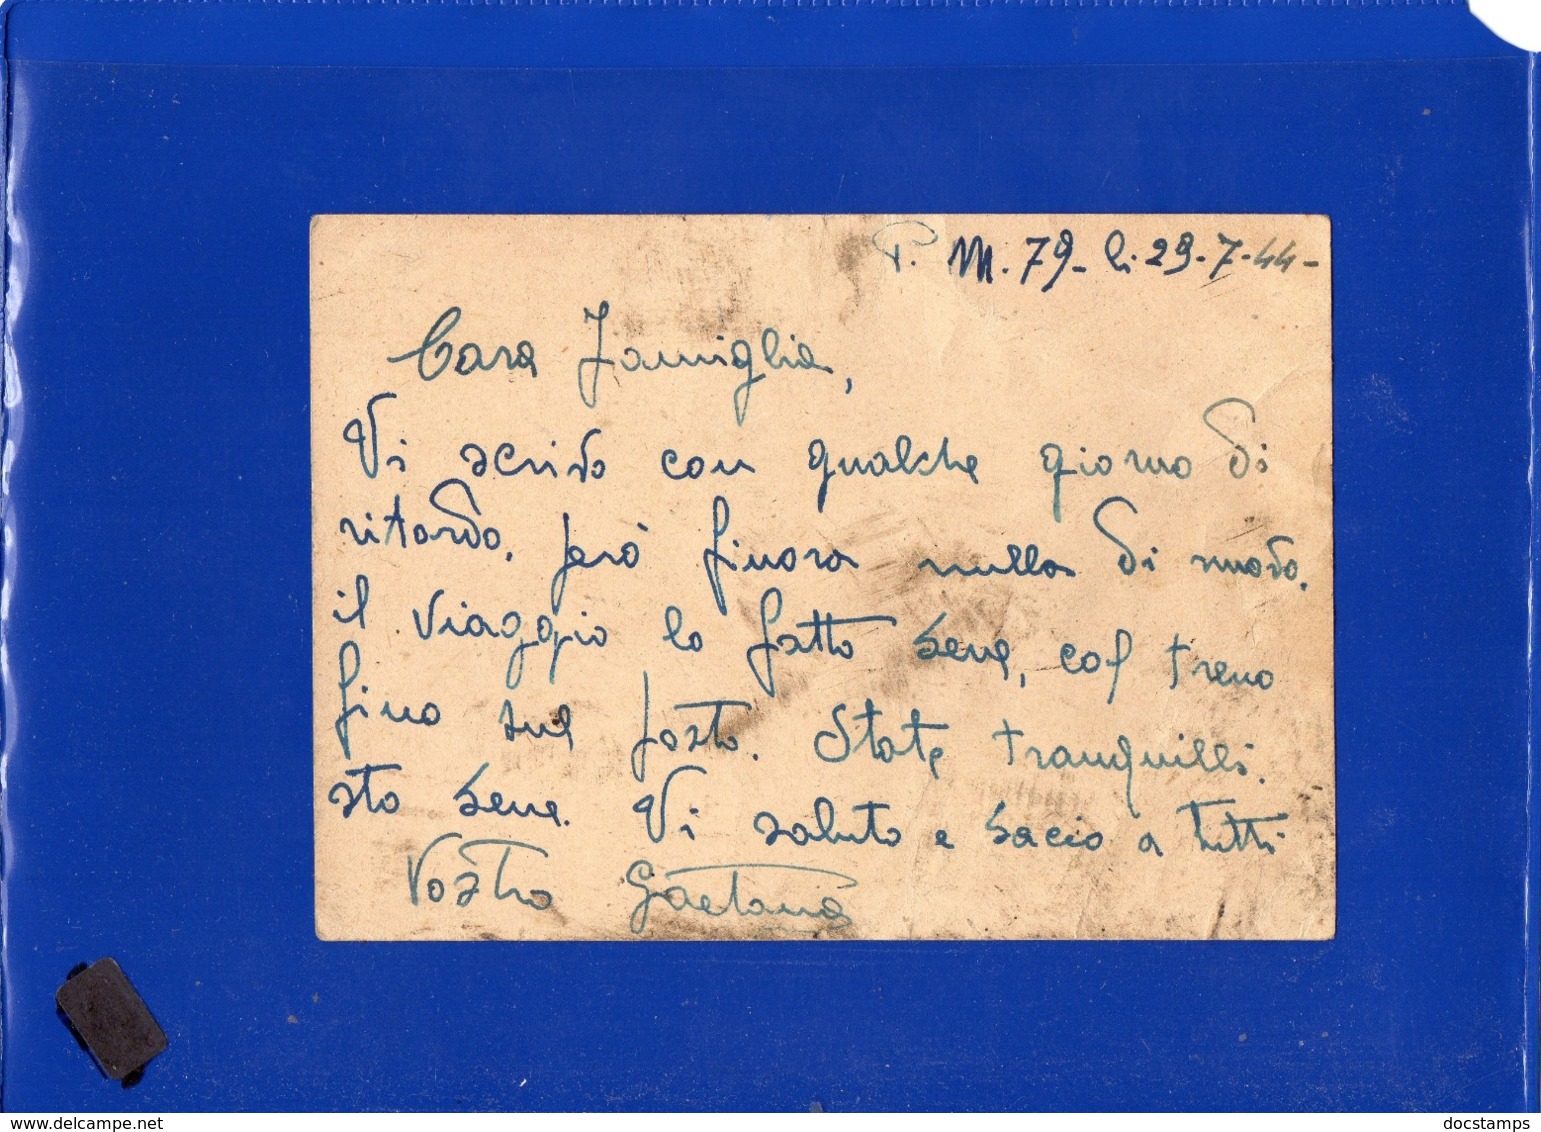 P. M. 79 - li 29-7-44-
Cara Famiglia,
Vi scrivo con qualche giorno di
ritardo. però finora nulla di nuovo.
il viaggio lo fatto bene, col treno
fino sul posto. State tranquilli.
sto bene. Vi saluto e bacio a tutti
Vostro Gaetano
www.delcampe.net
docstamps